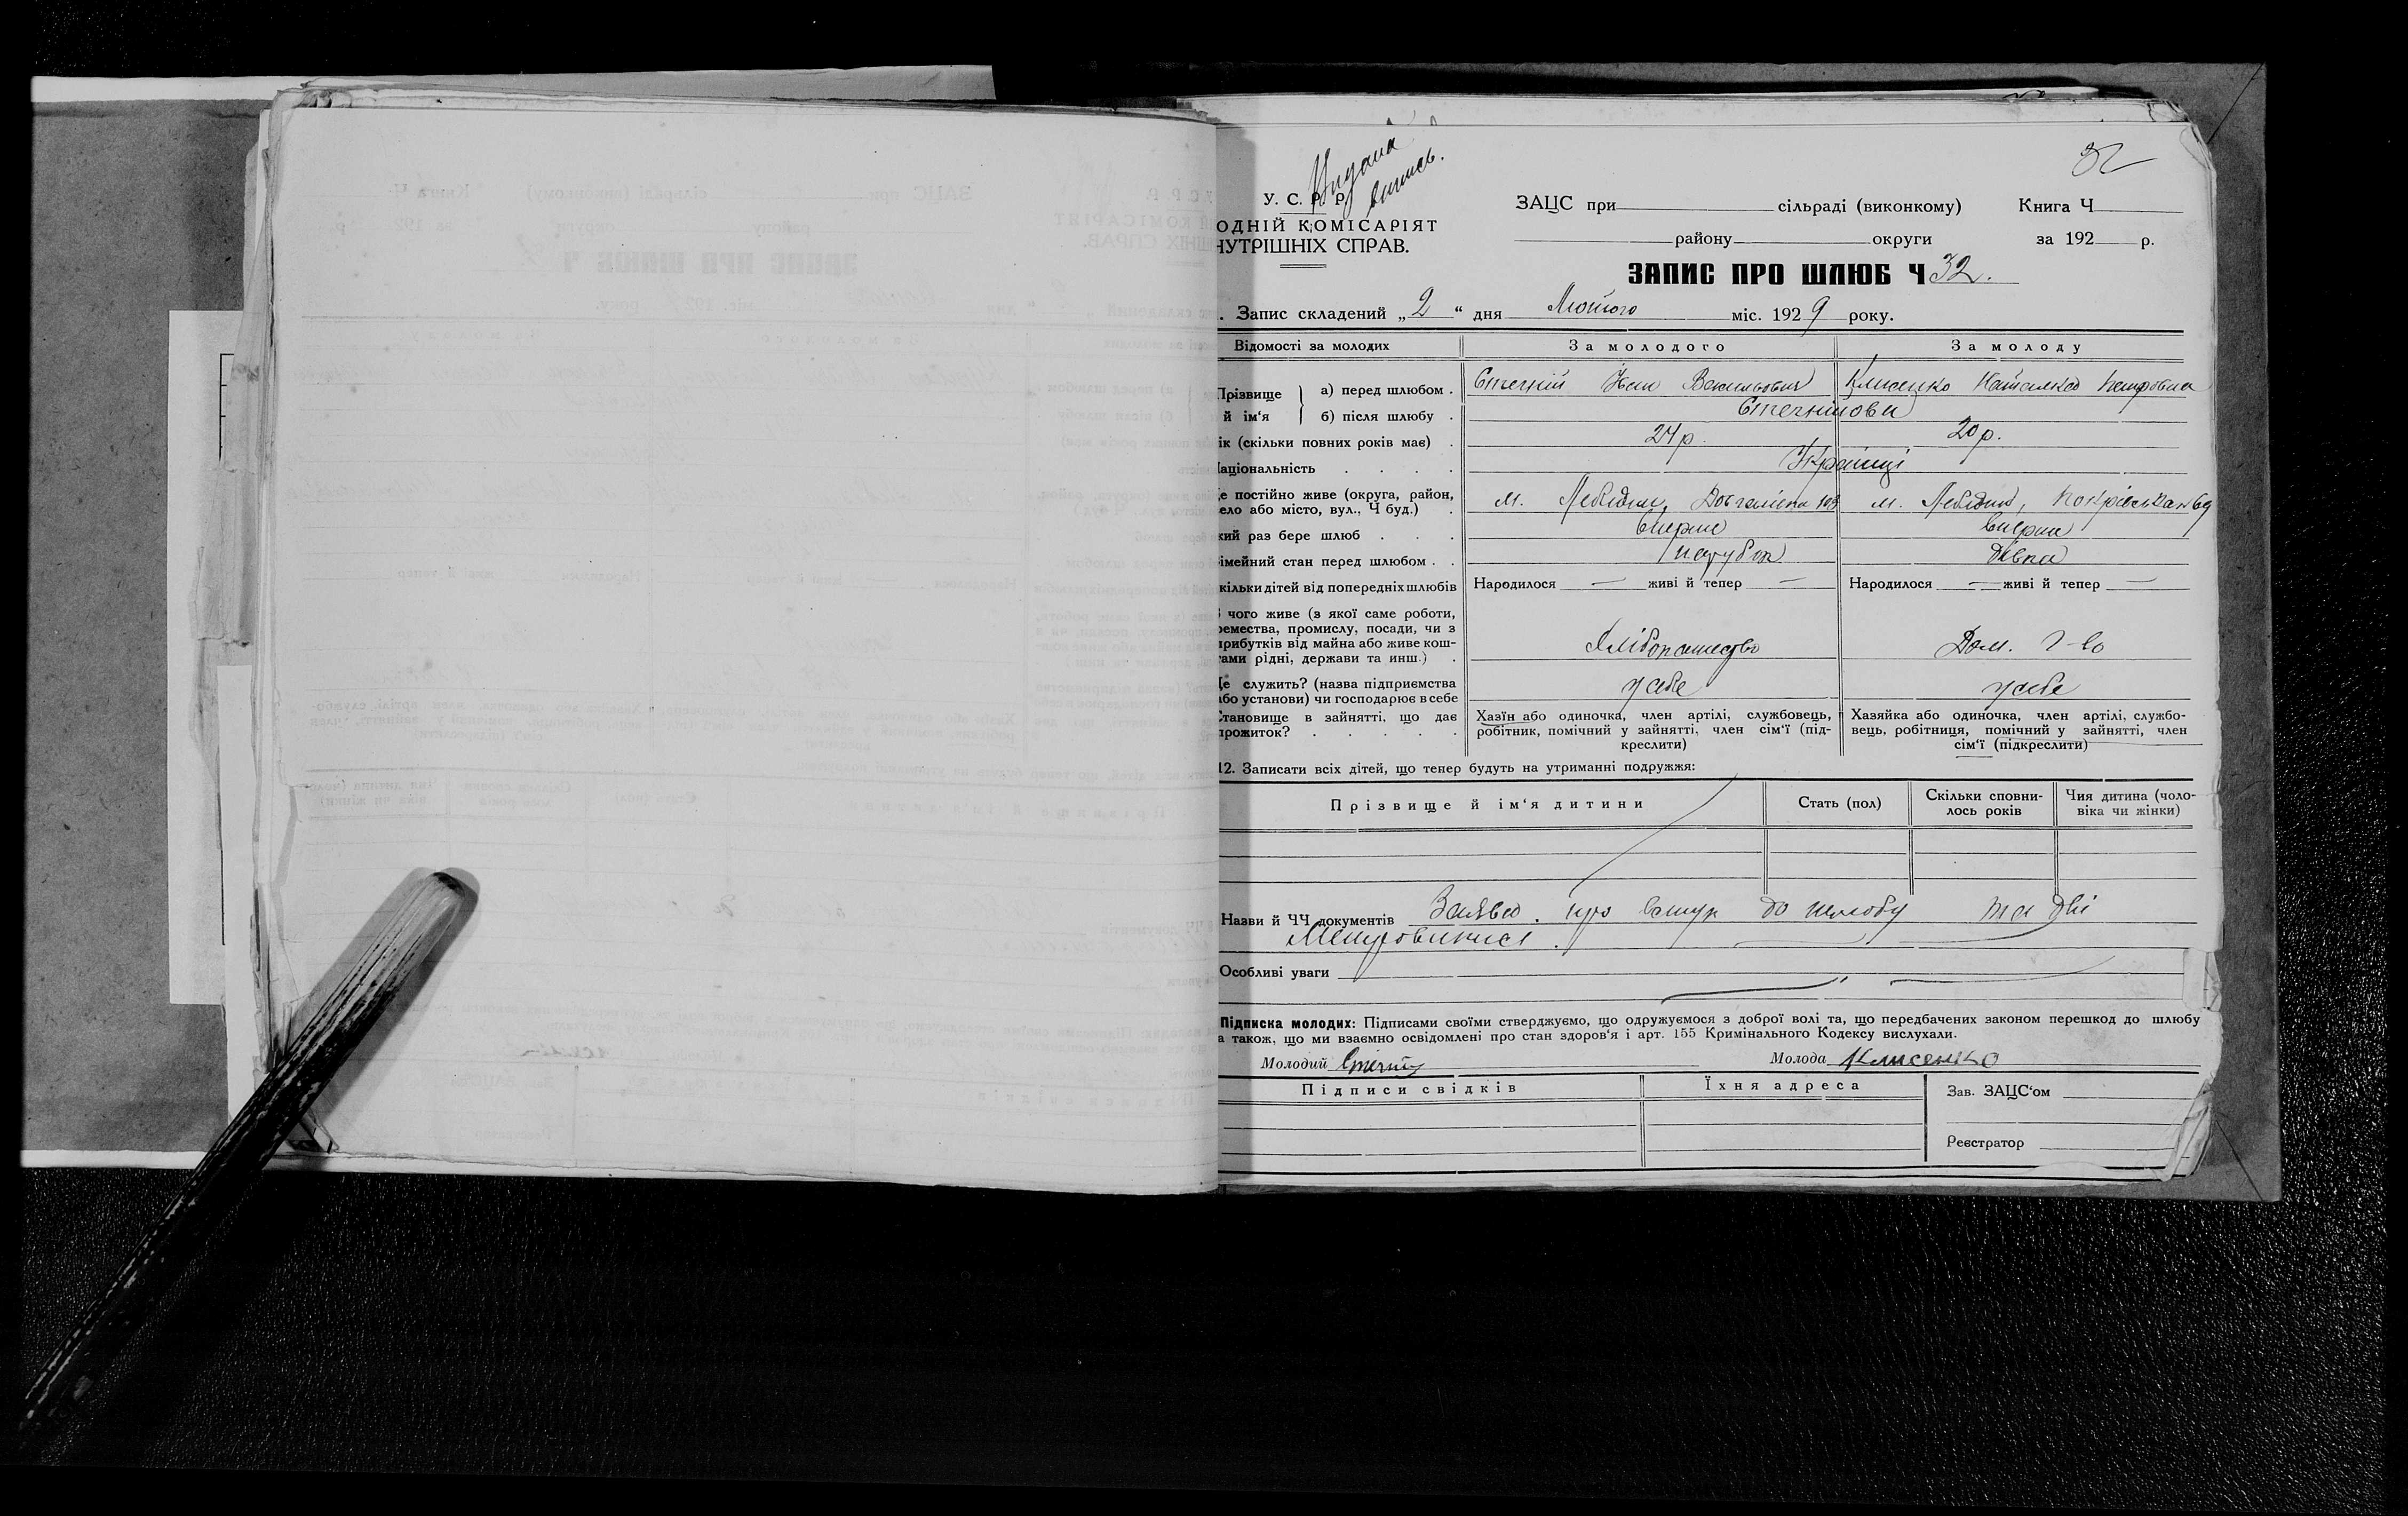 32
Видана
виписъ.
У. С. Р. Р.
ОДНІЙ КОМІСАРІЯТ
НУТРІШНІХ СПРАВ.
ЗАЦС при сільраді (виконкому) Книга Ч
району округи за 192 р.
ЗАПИС ПРО ШЛЮБ Ч 32.
. Запис складений „ 2 “ дня Лютого міс. 1929 року.
Відомості за молодих За молодого За молоду
Прізвище й ім‘я а) перед шлюбом . Стечній Іван Васильович Клисенко Наталка Петровна
б) після шлюбу . Стечнійови
ік (скільки повних років має) . 24 р. 20 р.
аціональність . . . . Українці
е постійно живе (округа, район,
ело або місто, вул., Ч буд.) . м. Лебедин, 103 м. Лебедин, Покрівська № 69
кий раз бере шлюб . . . вперше вперше
імейний стан перед шлюбом . . парубок дівка
кільки дітей від попередніх шлюбів Народилося — живі й тепер — Народилося — живі й тепер —
чого живе (з якої саме роботи,
ремества, промислу, посади, чи з
рибутків від майна або живе кош-
тами рідні, держави та инш.) . Хліборобство Дом. г-во
е служить? (назва підприємства
або установи) чи господарює в себе у себе у себе
Становище в зайнятті, що дає
прожиток? . . . . .
Хазїн або одиночка, член артілі, службовець,
робітник, помічний у зайнятті, член сім‘ї (під-
креслити)
Хазяйка або одиночка, член артілі, службо-
вець, робітниця, помічний у зайнятті, член
сім‘ї (підкреслити)
12. Записати всіх дітей, що тепер будуть на утриманні подружжя:
Прізвище й ім‘я дитини Стать (пол) Скільки сповни-
лось років Чия дитина (чоло-
віка чи жінки)
Назви й ЧЧ документів Заява про вступ до шлюбу та дві
Метровиписі.
Особливі уваги
Підписка молодих: Підписами своїми стверджуємо, що одружуємося з доброї волі та, що передбачених законом перешкод до шлюбу
а також, що ми взаємно освідомлені про стан здоров‘я і арт. 155 Кримінального Кодексу вислухали.
Молодий Стечній Молода Клисенко
Підписи свідків Їхня адреса Зав. ЗАЦС‘ом
Реєстратор